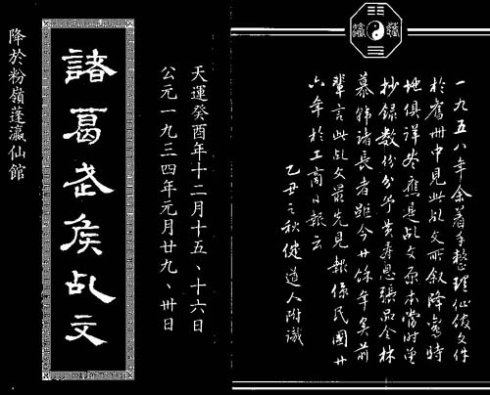 一九五八年余著手整理仙館文件
於舊冊中見此乩文所叙降鸞時
地俱詳應是乩文原本當時曾
抄録数份分予黄張品林
慕諸長者距今廿餘年矣前
輩言此乩文最先見報係民國廿
六年於工商日報云
乙丑之秋健道人附識
天運癸酉年十二月十五、十六日
公元一九三四年元月廿九、卅日
諸葛武侯乩文
降於粉嶺蓬瀛仙館